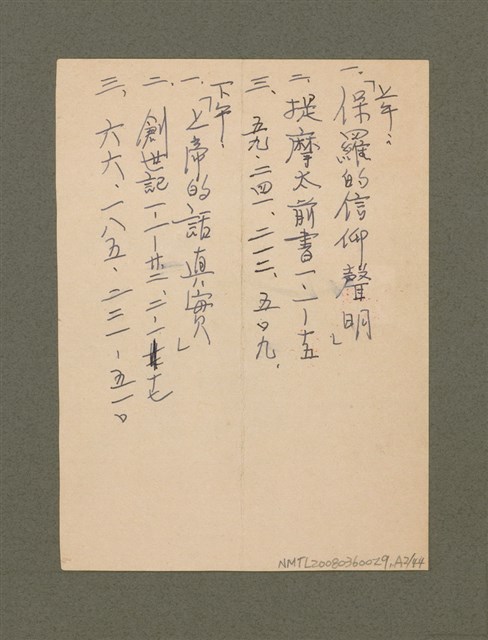 上午：
一、「保羅的信仰聲明」
二、提摩太前書一、1－十五
三、五九、二四一、二一二、五〇九、
下午：
一、「上帝的話真實」
二、創世記一、一－廿二、二、一－十七
三、六六、一八五、二三一、五一〇
NMTL20080360029.A2/44